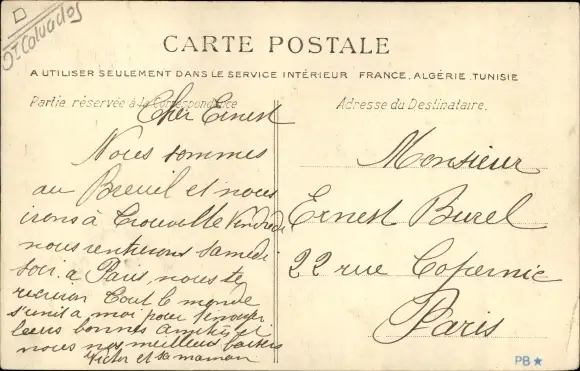 Dt Calvados
CARTE POSTALE
A UTILISER SEULEMENT DANS LE SERVICE INTÉRIEUR FRANCE, ALGÉRIE, TUNISIE
Partie réservée à la Correspondance
Adresse du Destinataire.
Cher Ernest
Nous sommes
au Breuil et nous
irons à Trouville Vendredi
nous rentrerons samedi
soir à Paris, nous te
Tout le monde
s'unit à moi pour t'envoyer
leurs bonnes amitiés et
nous nos meilleurs baisers
Victor et sa maman
Monsieur
Ernest Burel
22 rue Copernic
Paris
PB★